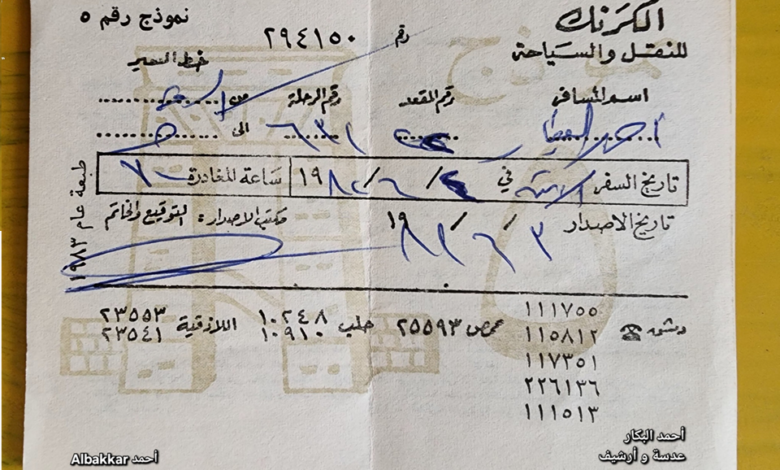 الكرنك
نموذج رقم ٥
للنقل والسياحة
رقم ٢٩٤١٥٠
خط السير
اسم المسافر رقم المقعد رقم الرحلة من
أحمد ٦٣١ الى
تاريخ السفر في ٦/ ١٩٨ ساعة المغادرة ٧
تاريخ الاصدار ٣ / ٦ / ١٩٨ مكتب الاصدار: التوقيع والخاتم
طبعة عام ١٩٨٣
دمشق ☎ ١١١٧٥٥
١١٥٨١٢
١١٧٣٥١
٢٢٦١٣٦
١١١٥١٣
حمص ٢٥٥٩٣ حلب ١٠٢٤٨ اللاذقية ٢٣٥٥٣
١٠٩١٠ ٢٣٥٤١
أحمد البكار
عدسة و أرشيف
أحمد Albakkar